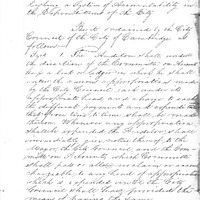 a System of Accountability in
the Expenditures of the City
Be it ordained by the City
Council of the City of Cambridge as
follows
Sect. 1. The Auditor shall under
the direction of the Committee on Accounts
keep a book or Ledger in which he shall
enter the several appropriations made
by the City Council each under its
appropriate head and charge to each
the different payments and expenditures
that from time to time shall be made
therefrom. Whenever any appropriation
shall be expended the Auditor shall
immediately give notice thereof to the
Mayor, the City Council, and the Com-
mittee on Accounts which Committee
shall pass or allow no claim or account
chargeable to any head of appropriation
which is expended until the City
Council shall have provided the
means of paying the same